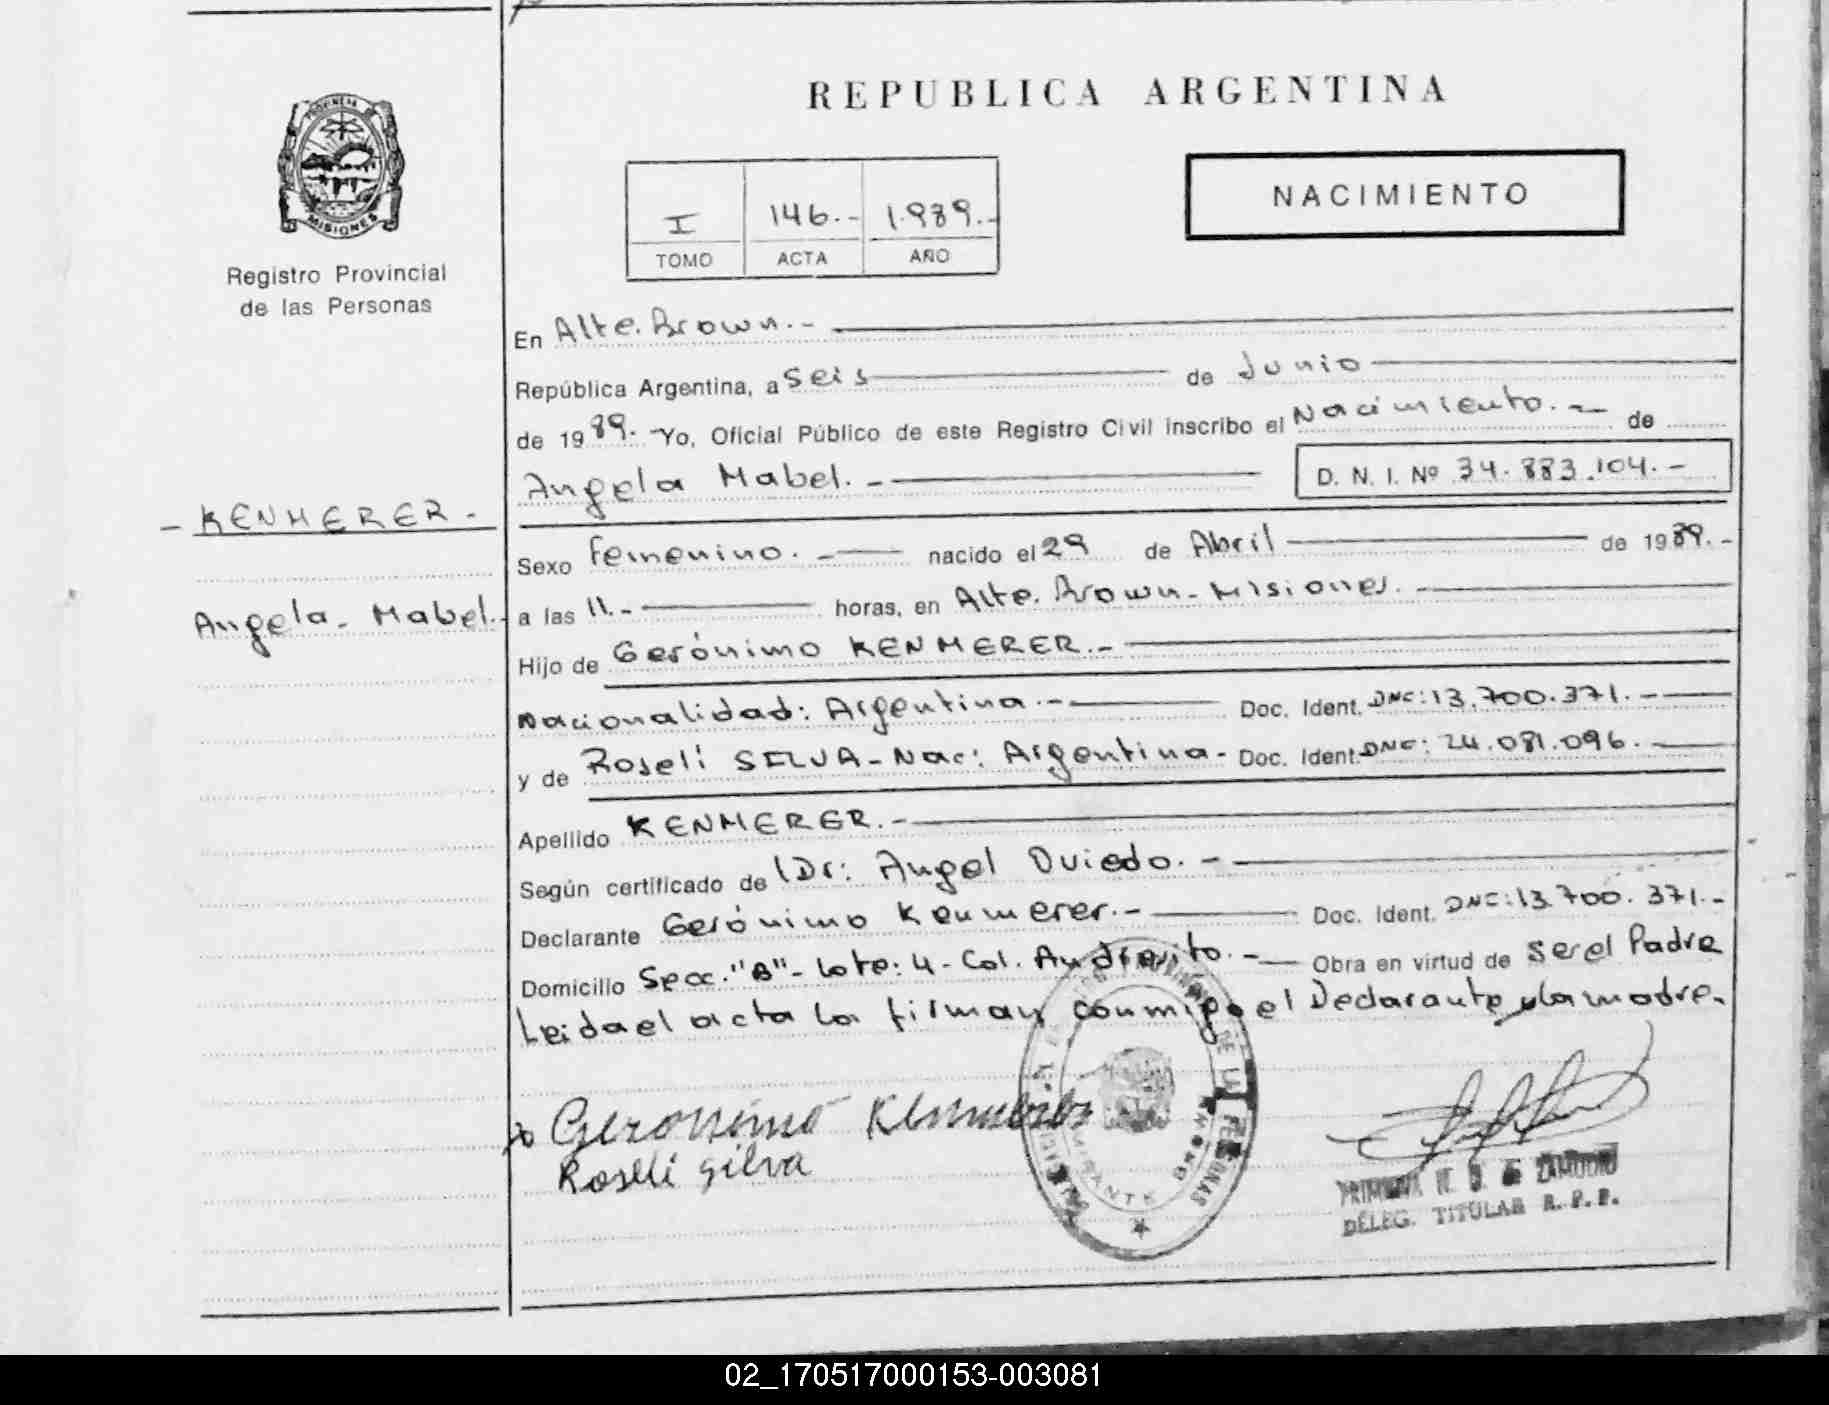 REPUBLICA ARGENTINA
NACIMIENTO
PROVINCIA
MISIONES
Registro Provincial
de las Personas
I 146.- 1.989.-
TOMO ACTA AÑO
En Alte. Brown.-
República Argentina, a seis de Junio
de 1989.- Yo, Oficial Público de este Registro Civil inscribo el Nacimiento.- de
Angela Mabel.- D. N. I. Nº 34.883.104.-
- KENMERER.-
Angela - Mabel.-
Sexo Femenino.- nacido el 29 de Abril de 1989.-
a las 11.- horas, en Alte. Brown - Misiones.
Hijo de Gerónimo KENMERER.-
Nacionalidad: Argentina.- Doc. Ident. DNC: 13.700.371.-
y de Roseli SILVA - Nac: Argentina - Doc. Ident. DNC: 24.081.096.-
Apellido KENMERER.-
Según certificado de Dr: Angel Oviedo.-
Declarante Gerónimo Kenmerer.- Doc. Ident. DNC: 13.700.371.-
Domicilio Secc. "B" - Lote: 4 - Col. Andresito.- Obra en virtud de ser el Padre
Leida el acta la firman conmigo el Declarante y la madre.
Geronimo Kenmerer
Roseli Silva
DE LAS PERSONAS
ALMIRANTE BROWN
ZAMUDIO
DELEG. TITULAR R. P. P.
02_170517000153-003081